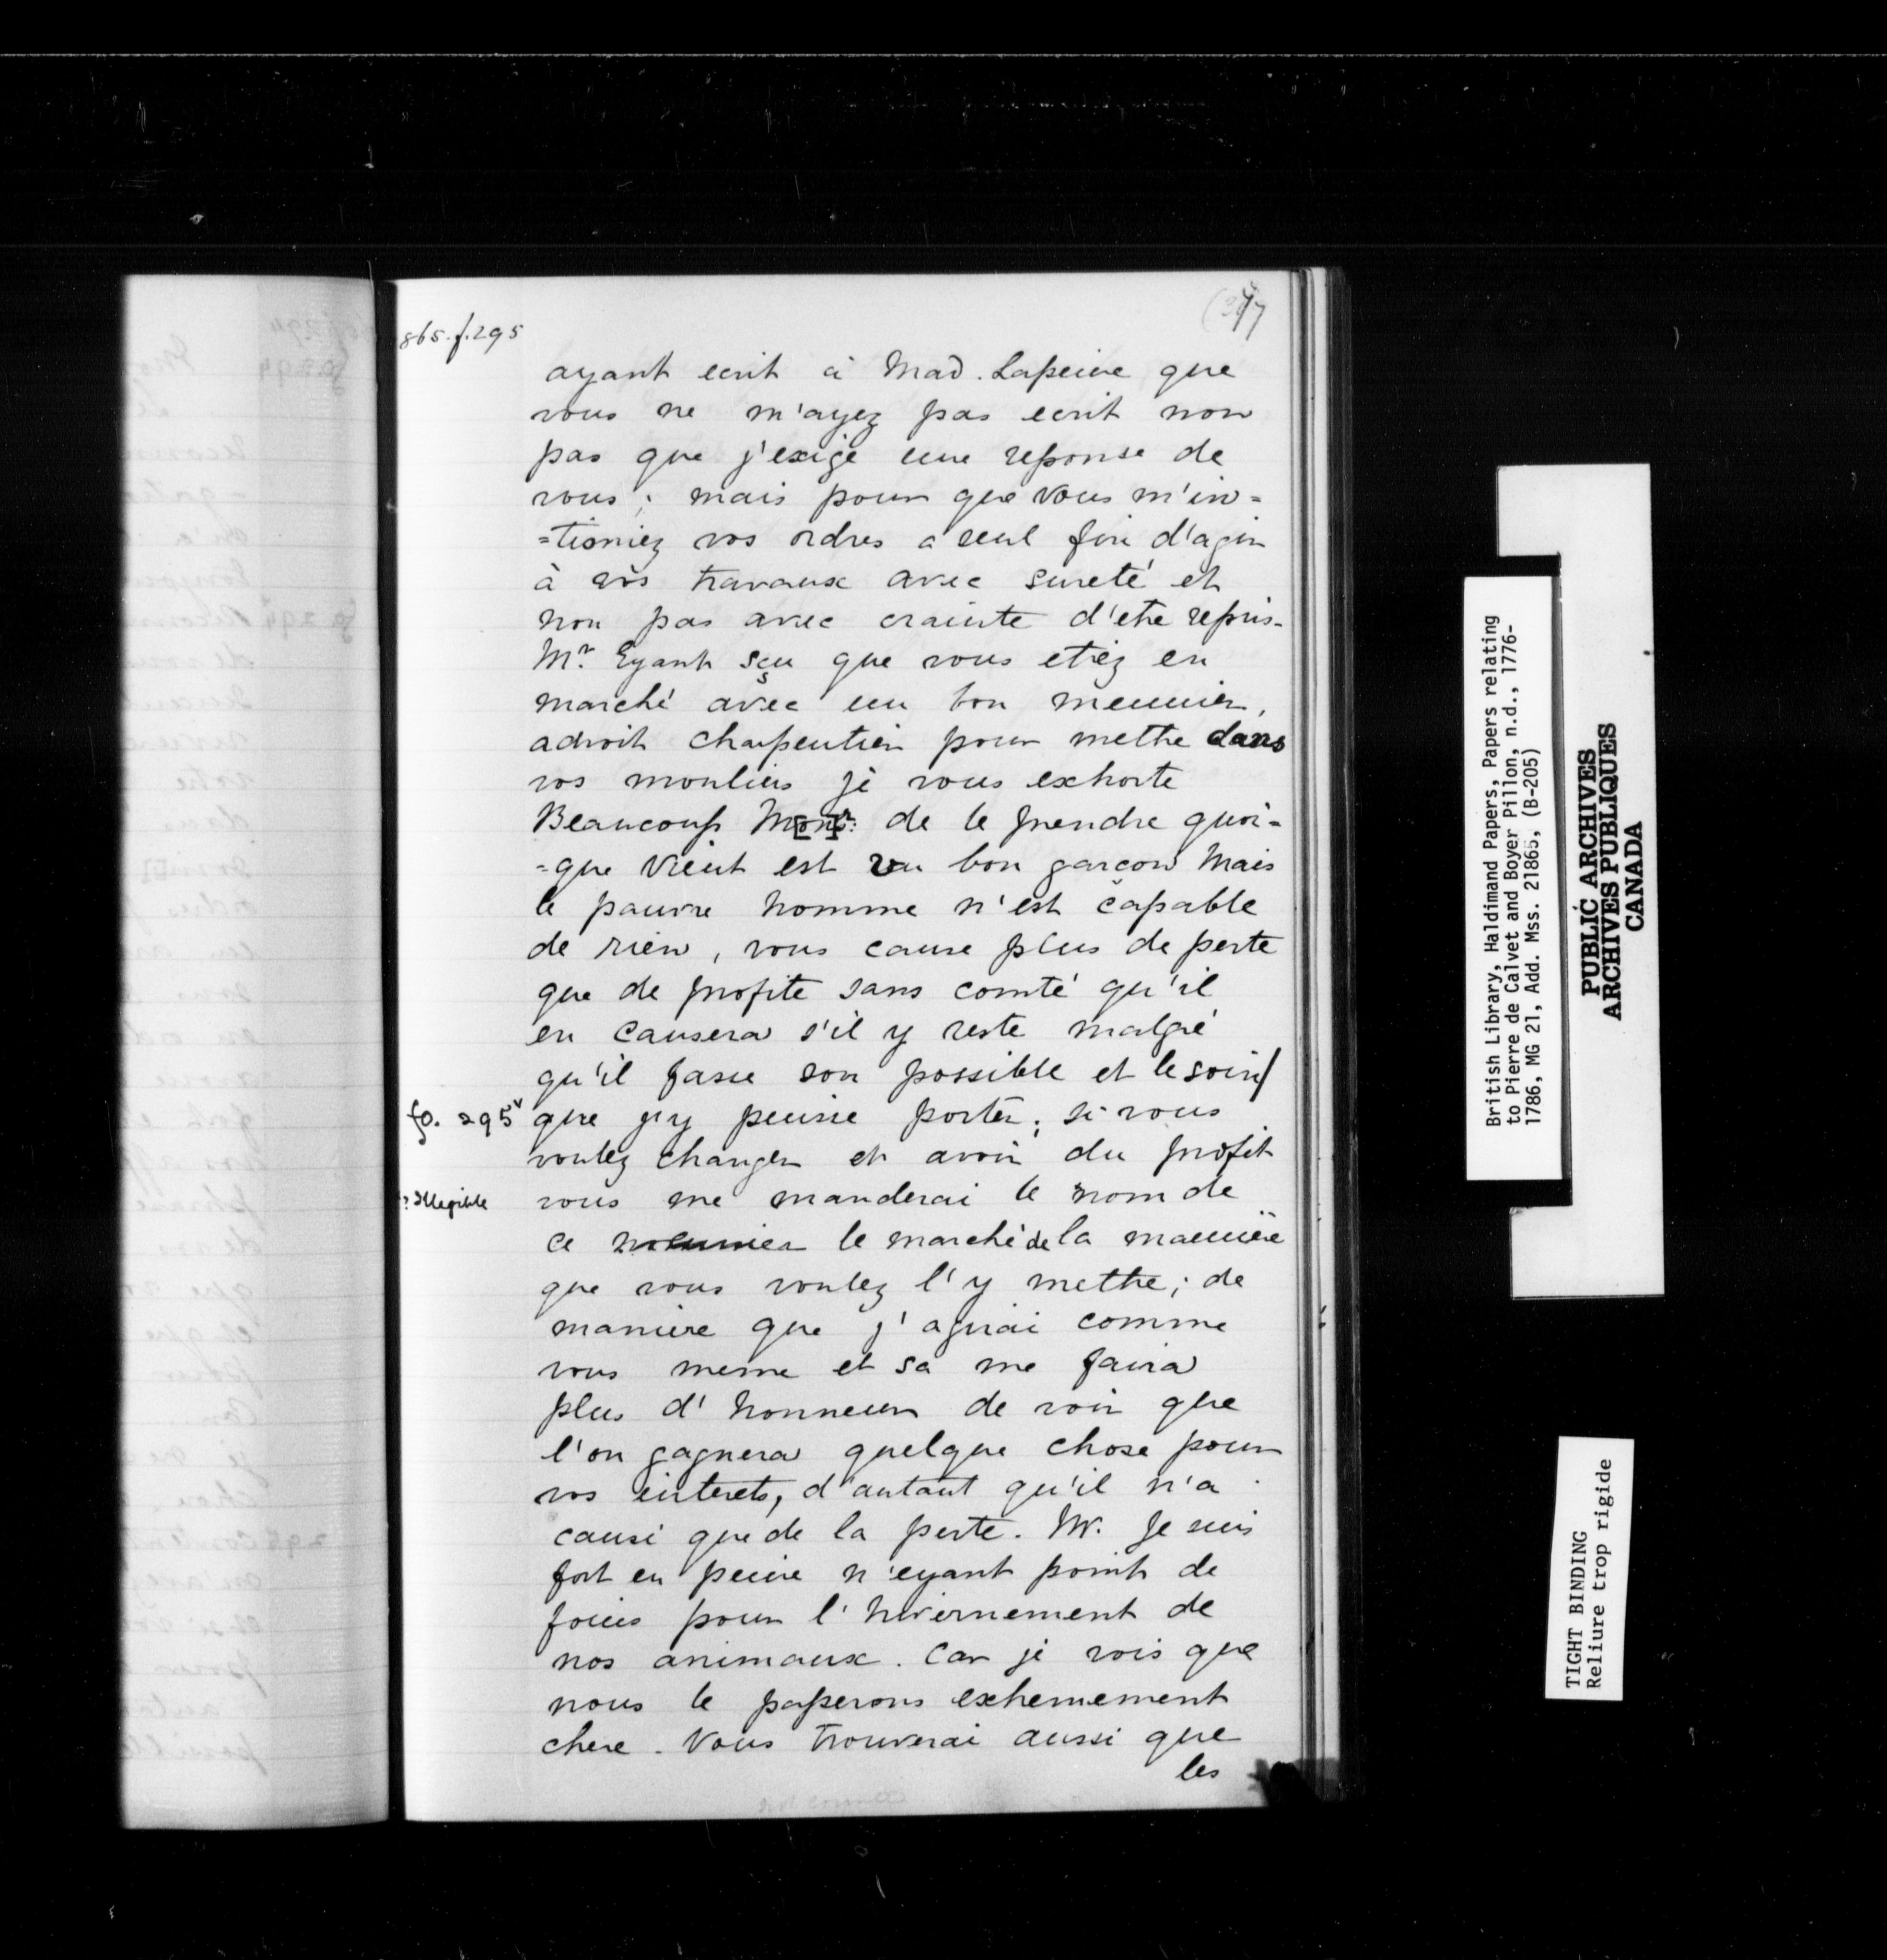 865.f.295
77
ayant ecrit à Mad. Lapeire que
vous ne m'ayez pas ecrit non
pas que j'exige une reponse de
vous ; mais pour que vous m'in=
=tioniez vos ordres a seul fin d'agir
à vos travaux avec sureté et
non pas avec crainte d'etre repris.
Mr. Eyant sçu que vous etiéz en
marché avec un bon meunier,
adroit charpentier pour mettre dans
vos moulins je vous exhorte
Beaucoup Monsr: de le prendre quoi=
=que Vient est un bon garcon Mais
le pauvre homme n'est capable
de rien, vous cause plus de perte
que de profite sans comté qu'il
en causera s'il y reste malgré
qu'il fasse son possible et le soin/
fo. 295v que j'y puisse porter; si vous
voulez changer et avoir du profit
? Illegible vous me manderai le nom de
ce meunier le marché de la manière
que vous voulez l'y mettre; de
maniere que j'agirai comme
vous meme et sa me faira
plus d'honneur de voir que
l'on gagnera quelque chose pour
vos interets, d'autant qu'il n'a
causé que de la perte. Mr. Je suis
fort en peine n'eyant point de
foins pour l'hivernement de
nos animaux. Car je vois que
nous le payerons extremement
chere. Vous trouverai aussi que
les
British Library, Haldimand Papers, Papers relating
to Pierre de Calvet and Boyer Pillon, n.d., 1776-
1786, MG 21, Add. Mss. 21865, (B-205)
PUBLIC ARCHIVES
ARCHIVES PUBLIQUES
CANADA
TIGHT BINDING
Reliure trop rigide